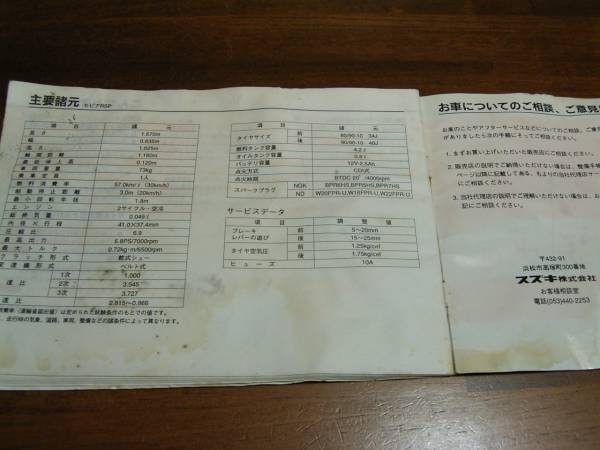 主要諸元 セピアRSP
項目 諸元
長さ 1.670m
幅 0.635m
高さ 1.025m
軸間距離 1.180m
最低地上高 0.120m
車両重量 73kg
乗車定員 1人
燃料消費率 57.0km/ℓ (30km/h)
制動停止距離 3.0m (20km/h)
最小回転半径 1.8m
エンジン 2サイクル・空冷
総排気量 0.049ℓ
内径×行程 41.0×37.4mm
圧縮比 6.9
最高出力 6.8PS/7000rpm
最大トルク 0.72kg-m/6500rpm
クラッチ形式 乾式シュー
変速機形式 ベルト式
1次 1.000
速比 2次 3.545
3次 3.727
速比 2.815〜0.866
消費率(運輸省届出値)は定められた試験条件のもとでの値です。
走行時の気象、道路、車両、整備などの諸条件によって異なります。
項目 諸元
タイヤサイズ 前 80/90-10 34J
後 90/90-10 40J
燃料タンク容量 4.2ℓ
オイルタンク容量 0.8ℓ
バッテリ容量 12V-2.5Ah
点火方式 CDI式
点火時期 /4000rpm
スパークプラグ NGK BPR6HS,BPR5HS,BPR7HS
ND W20FPR-U,W16FPR-U,W22FPR-U
サービスデータ
項目 調整値
ブレーキレバーの遊び 前 5〜20mm
後 15〜25mm
タイヤ空気圧 前 1.25kg/cm²
後 1.75kg/cm²
ヒューズ 10A
お車についてのご相談、ご意見
お車のことやアフターサービスなどについてのご相談、ご意見
がありましたら次の手順にそってご相談ください。
1. まずお買い上げいただいた販売店にご相談ください。
2. 販売店の説明でご納得いただけない場合は、整備手帳
ページ以降に記載してある、もよりの代理店サー
にご相談ください。
3. 当社代理店の説明でご理解いただけない場合は、お
記にご相談ください。
〒432-91
浜松市高塚町300番地
スズキ株式会社
お客様相談室
電話(053)440-2253